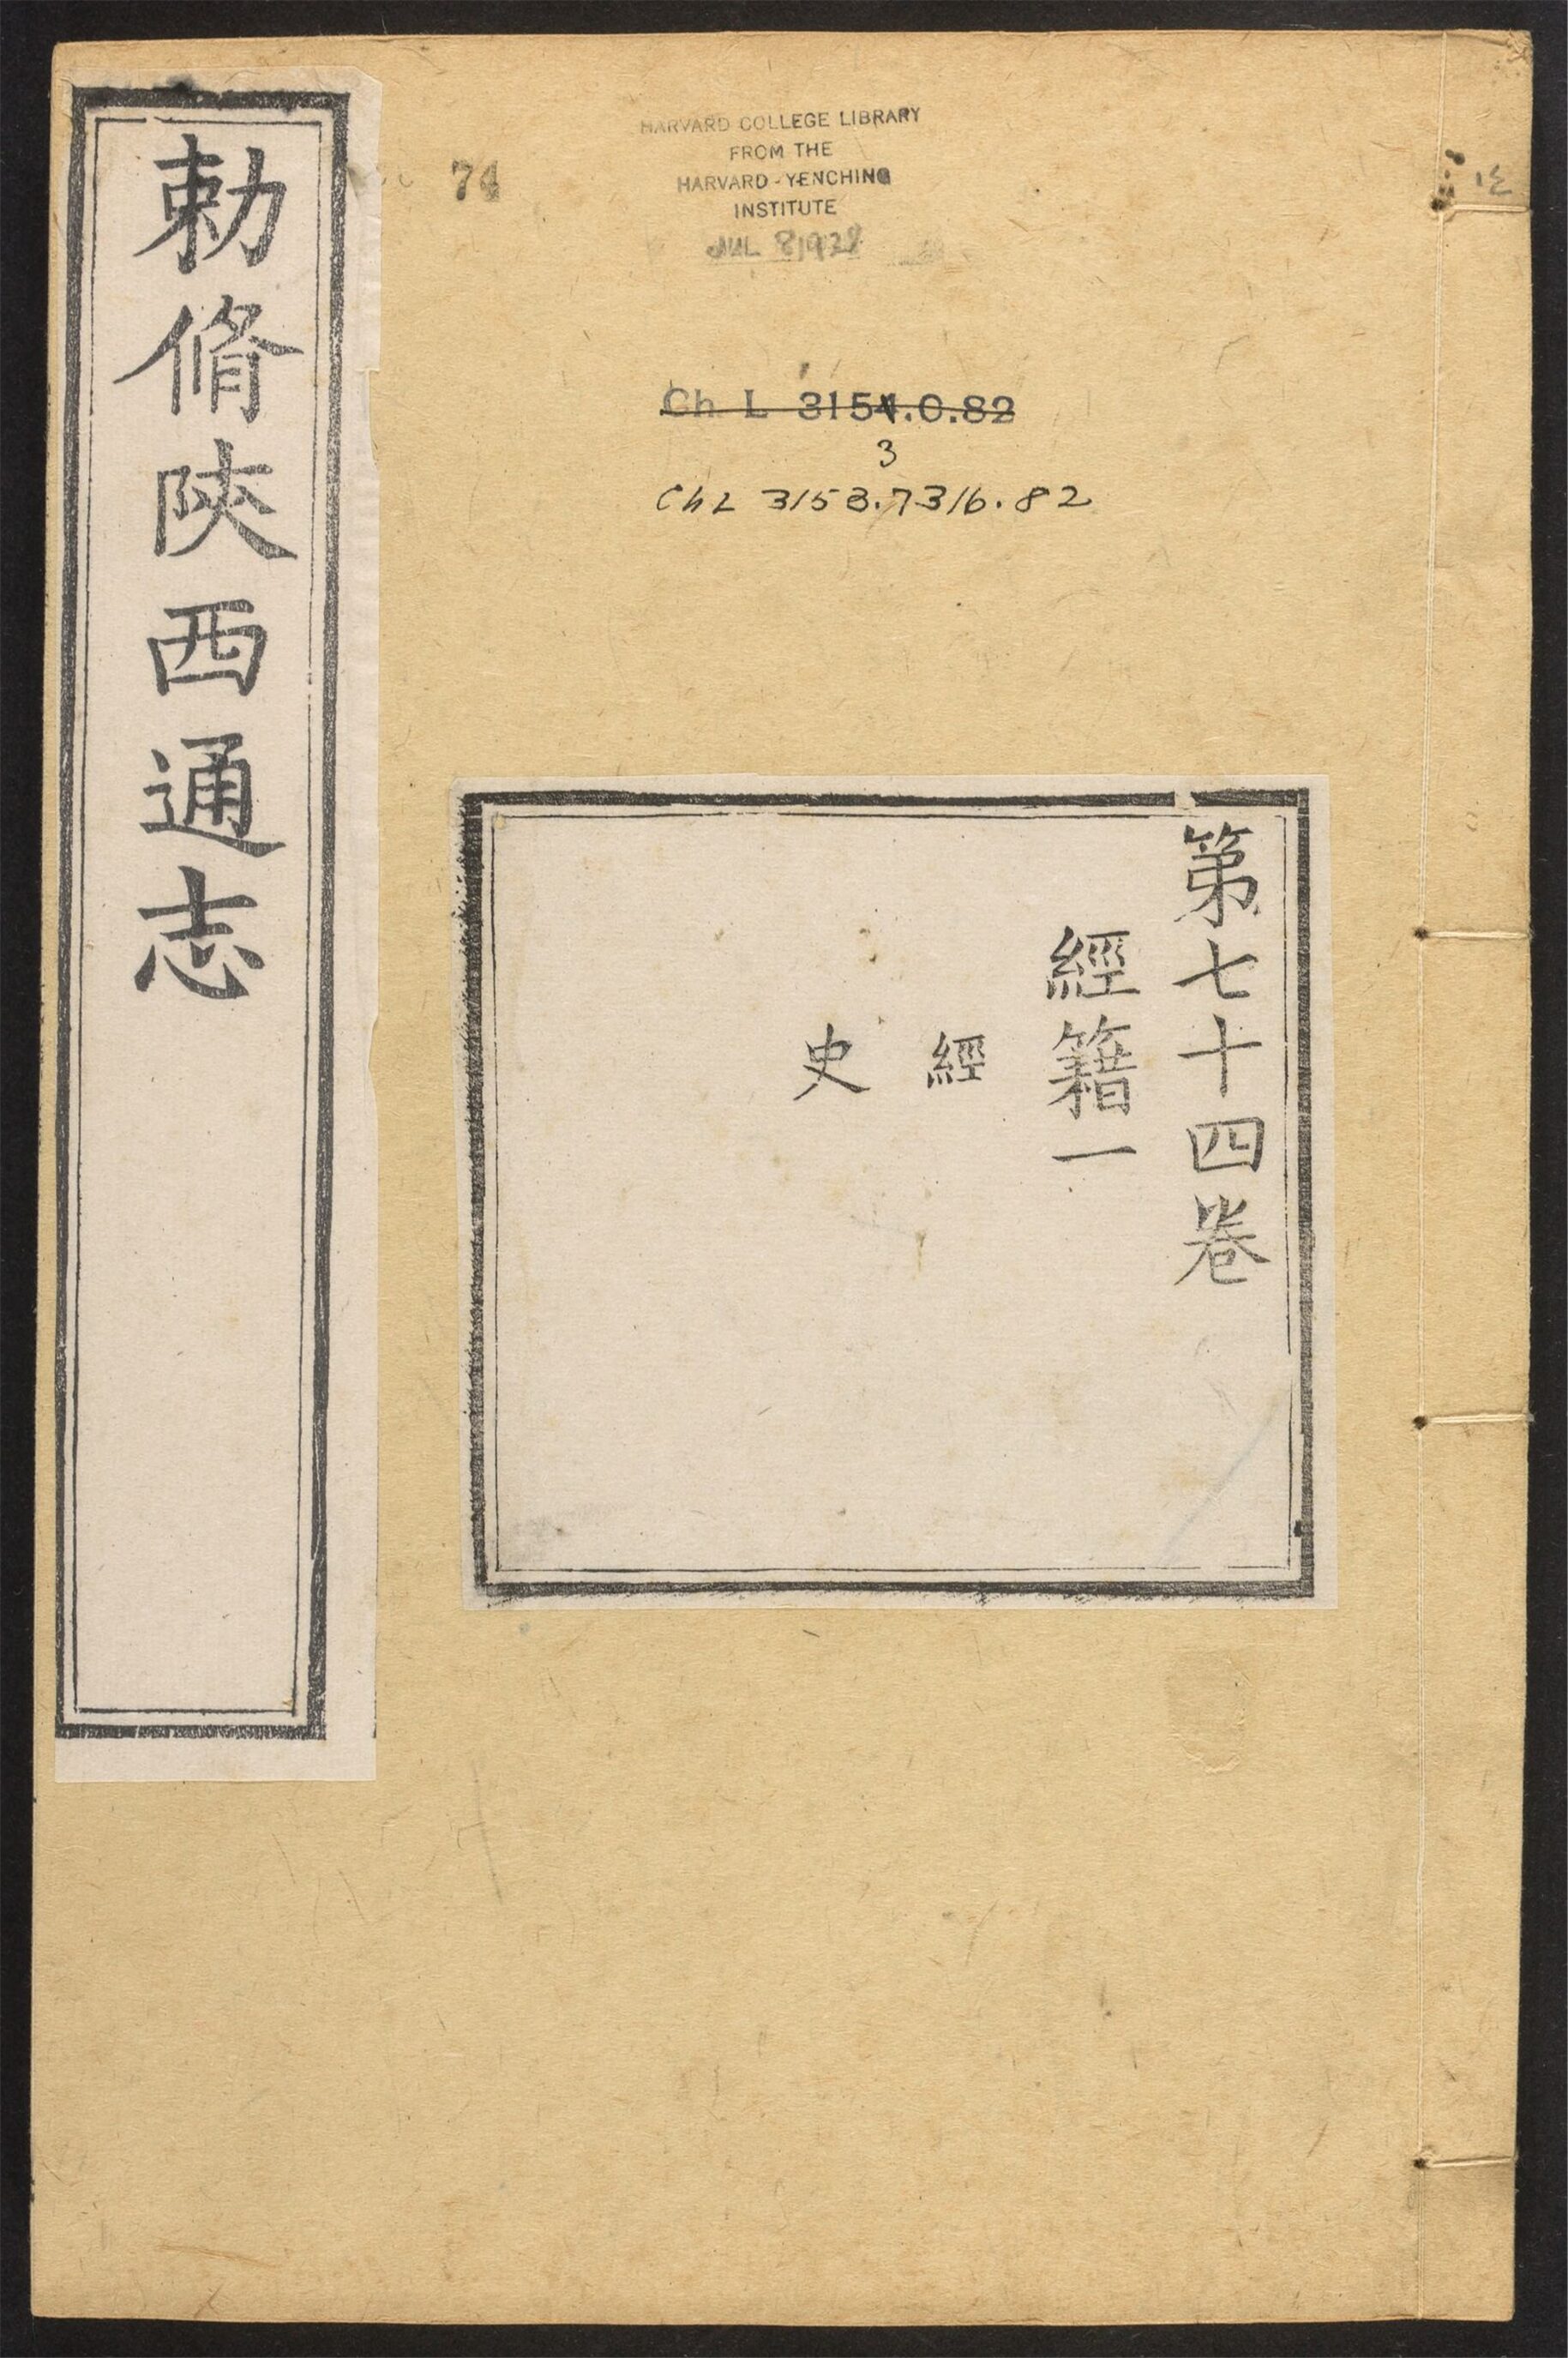 勅脩陝西通志
74
HARVARD COLLEGE LIBRARY
FROM THE
HARVARD-YENCHING
INSTITUTE
JUL 8 1928
Ch L 3154.0.82
3
Ch L 3153.7316.82
第七十四卷
經籍一
經
史